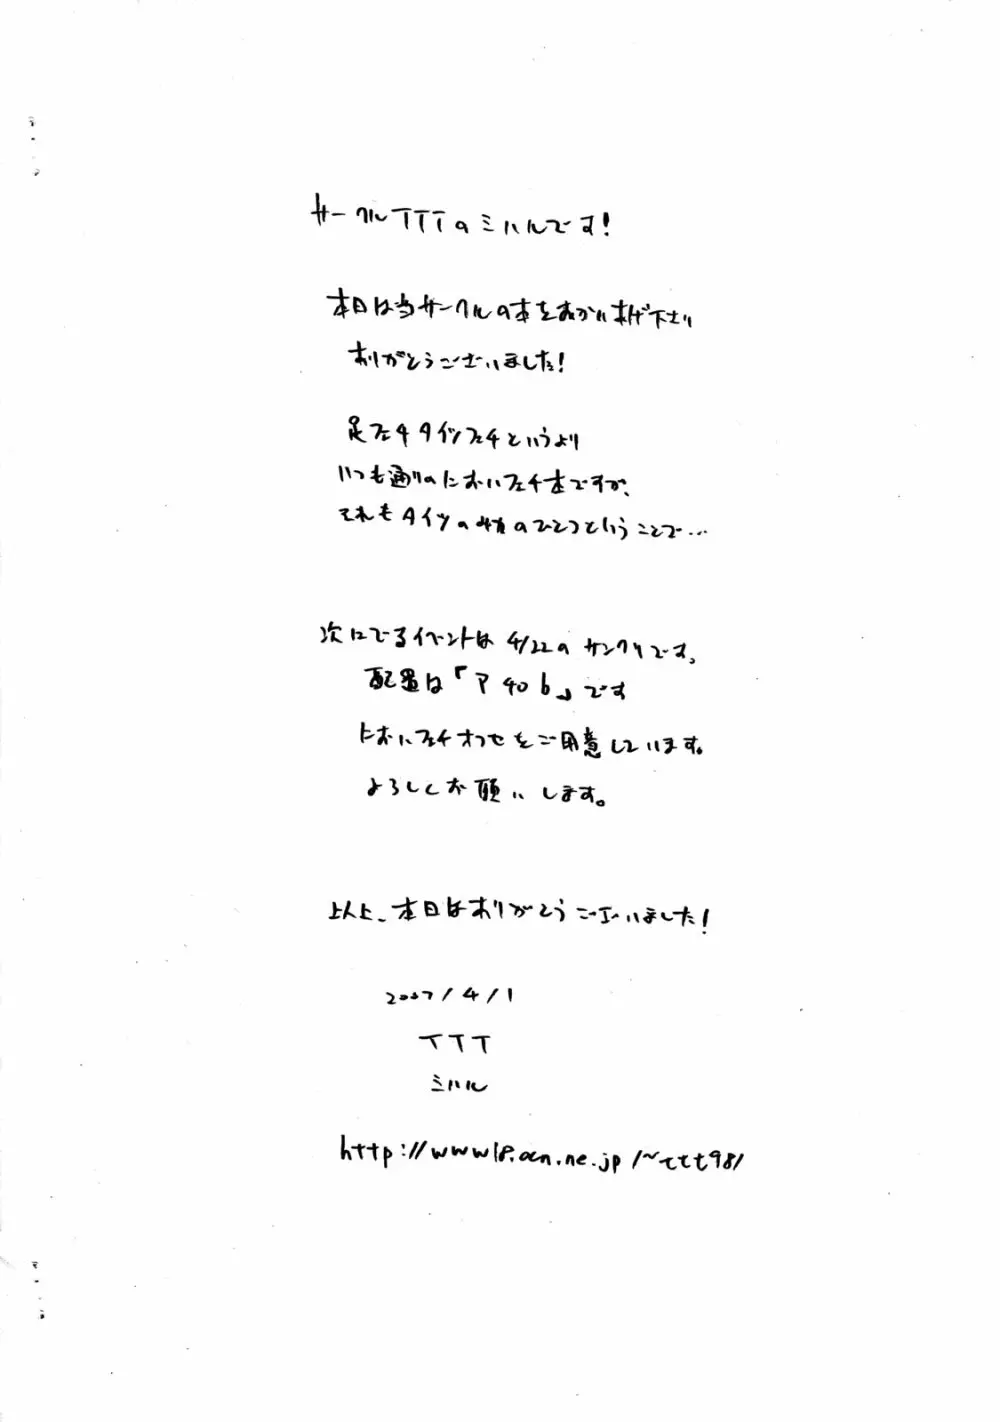 サークルTTTのミハルです!
本日は当サークルの本をおかい求め下さり
ありがとうございました!
足フェチタイツフェチというより
いつも通りのにおいフェチ本ですが、
それもタイツの のひとつということで…
次にでるイベントは4/22のサンクリです。
配置は「ア40b」です
においフェチオフセをご用意しています。
よろしくお願いします。
以上、本日はありがとうございました!
2007/4/1
TTT
ミハル
http://www18.ocn.ne.jp/~ttt98/